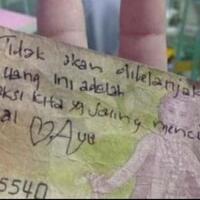 Tidak akan dibelanjak
uang ini adalah
ksi kita yg saling menci
al ♡Ayu
5540